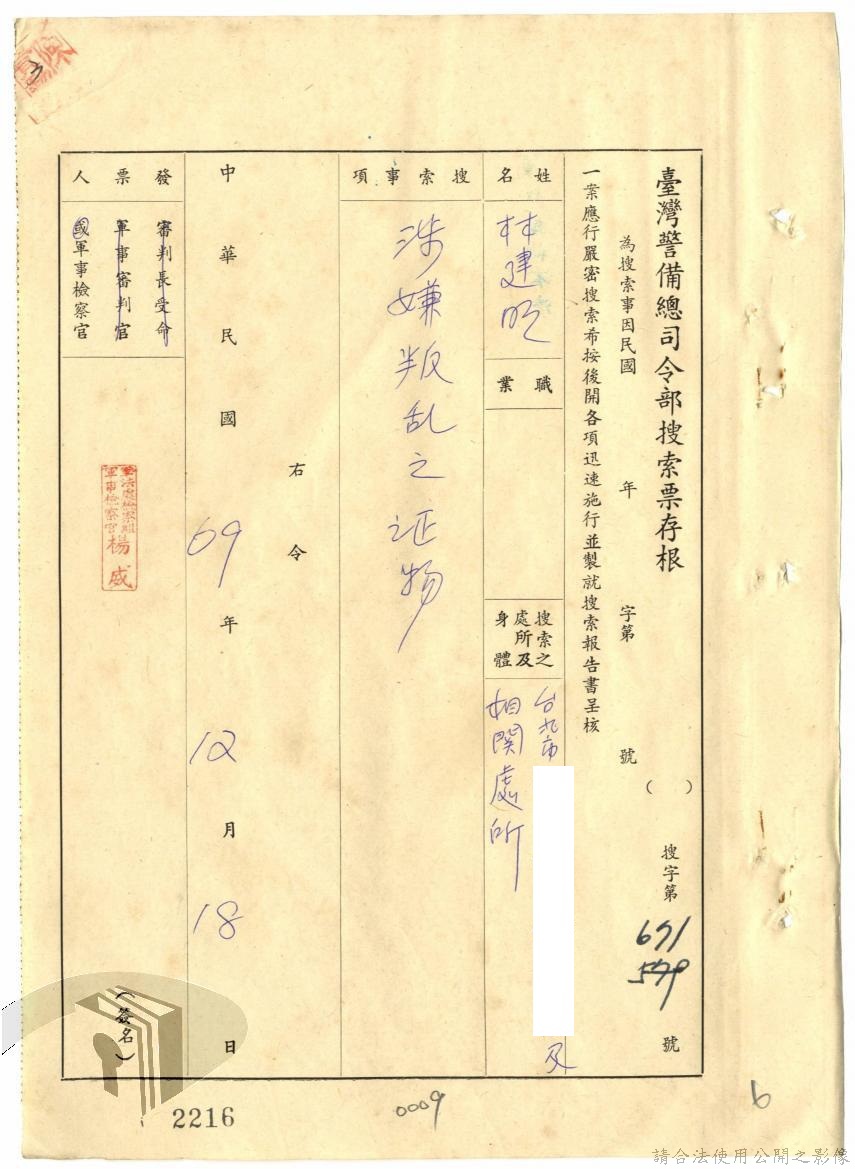 臺灣警備總司令部搜索票存根
()搜字第671號
579
為搜索事因民國 年 字第 號
一案應行嚴密搜索希按後開各項迅速施行並製就搜索報告書呈核
姓名
林建明
職業
搜索之處所及身體
台北市 及
相関處所
搜索事項
涉嫌叛乱之证物
右令
中華民國69年12月18日
發票人
審判長受命
軍事審判官
國軍事檢察官
軍法處檢察組
軍事檢察官
楊威
(簽名)
3
2216
0009
6
請合法使用公開之影像